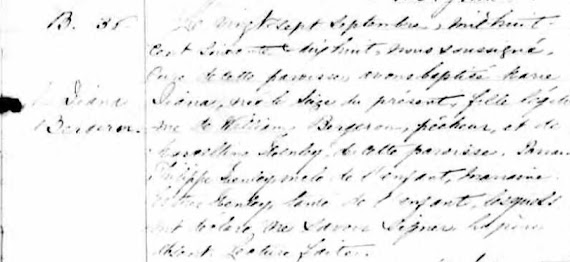 B. 38.
Diana
Bergeron.
Le vingt sept Septembre, mil huit
cent soixante dix huit, nous soussigné,
Curé de cette paroisse avons baptisé Marie
Diana, née le seize du présent, fille légiti
me de William Bergeron, pêcheur, et de
de cette paroisse. Parrain
Philippe de l'enfant, marraine
tante de l'enfant, lesquels
ont déclaré ne savoir signer. Le père
Lecture faite.